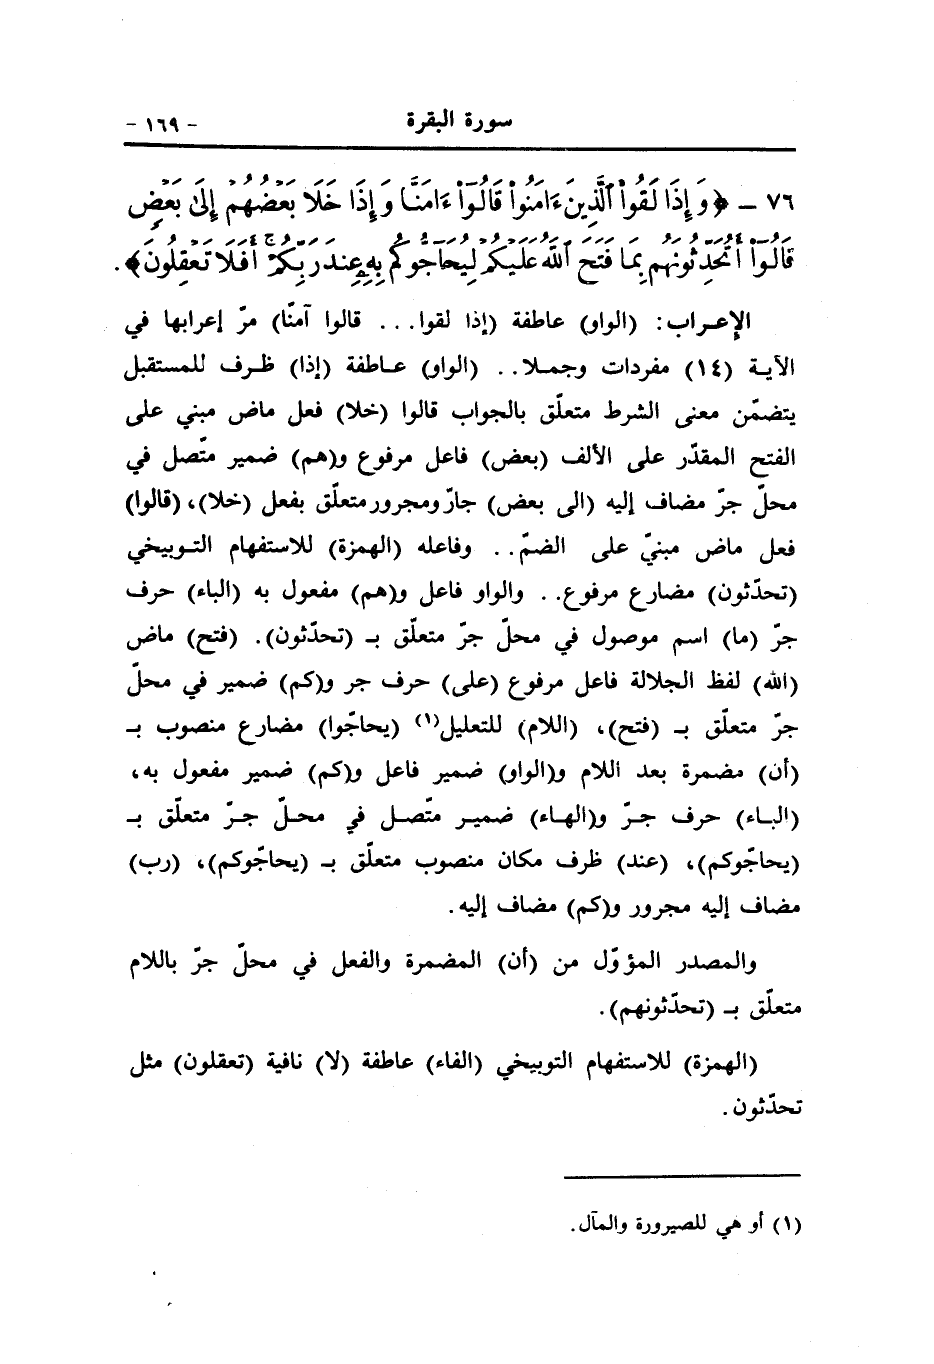 سورة البقرة - ١٦٩ -
٧٦ - ﴿وَإِذَا لَقُوا۟ ٱلَّذِينَ ءَامَنُوا۟ قَالُوٓا۟ ءَامَنَّا وَإِذَا خَلَا بَعْضُهُمْ إِلَىٰ بَعْضٍ
قَالُوٓا۟ أَتُحَدِّثُونَهُم بِمَا فَتَحَ ٱللَّهُ عَلَيْكُمْ لِيُحَآجُّوكُم بِهِۦ عِندَ رَبِّكُمْ ۚ أَفَلَا تَعْقِلُونَ﴾.
الإعراب: (الواو) عاطفة (إذا لقوا... قالوا آمنّا) مرّ إعرابها في
الآية (١٤) مفردات وجملا.. (الواو) عاطفة (إذا) ظرف للمستقبل
يتضمّن معنى الشرط متعلّق بالجواب قالوا (خلا) فعل ماض مبني على
الفتح المقدّر على الألف (بعض) فاعل مرفوع و(هم) ضمير متّصل في
محلّ جرّ مضاف إليه (الى بعض) جارّ ومجرور متعلّق بفعل (خلا)، (قالوا)
فعل ماض مبنيّ على الضمّ.. وفاعله (الهمزة) للاستفهام التوبيخي
(تحدّثون) مضارع مرفوع.. والواو فاعل و(هم) مفعول به (الباء) حرف
جرّ (ما) اسم موصول في محلّ جرّ متعلّق بـ (تحدّثون). (فتح) ماض
(الله) لفظ الجلالة فاعل مرفوع (على) حرف جر و(كم) ضمير في محلّ
جرّ متعلّق بـ (فتح)، (اللام) للتعليل(١) (يحاجّوا) مضارع منصوب بـ
(أن) مضمرة بعد اللام و(الواو) ضمير فاعل و(كم) ضمير مفعول به،
(الباء) حرف جرّ و(الهاء) ضمير متّصل في محلّ جرّ متعلّق بـ
(يحاجّوكم)، (عند) ظرف مكان منصوب متعلّق بـ (يحاجّوكم)، (رب)
مضاف إليه مجرور و(كم) مضاف إليه.
والمصدر المؤوّل من (أن) المضمرة والفعل في محلّ جرّ باللام
متعلّق بـ (تحدّثونهم).
(الهمزة) للاستفهام التوبيخي (الفاء) عاطفة (لا) نافية (تعقلون) مثل
تحدّثون.
(١) أو هي للصيرورة والمآل.